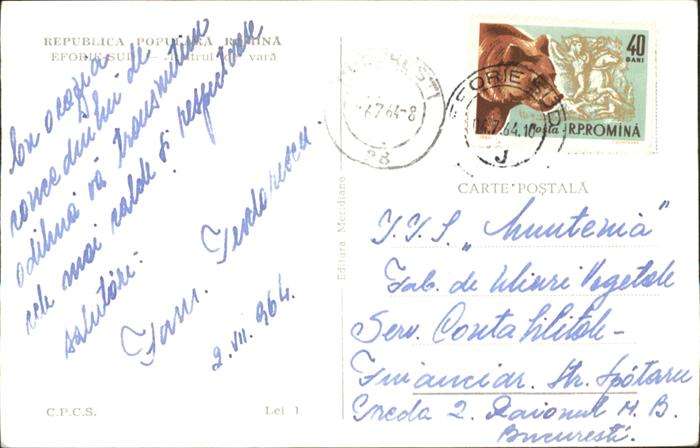 REPUBLICA POPULARĂ ROMÎNĂ
EFORIE SUD — de vară
Cu ocazia
concediului de
odihnă vă transmitem
cele mai calde și respectoase
salutări.
Fam. Teodorescu
2. VII. 964.
C.P.C.S.
Lei 1
Editura Meridiane
BUCUREȘTI
-4.7 64-8
28
EFORIE SUD
.7.64.10
J
40
BANI
Posta R.P.ROMÎNĂ
CARTE POȘTALĂ
I.I.S. „Muntenia"
Fab. de Uleiuri Vegetale
Serv. Contabilitate-
Financiar. Str. Spătaru
Preda 2. Raionul N. B.
București.